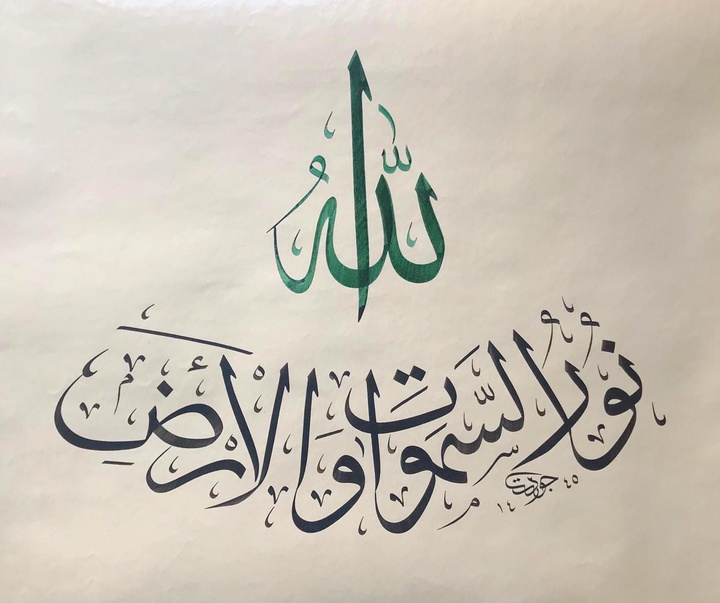 اللّٰهُ
نُورُ السَّمٰوَاتِ وَالْأَرْضِ
جودت
١٤٤٥